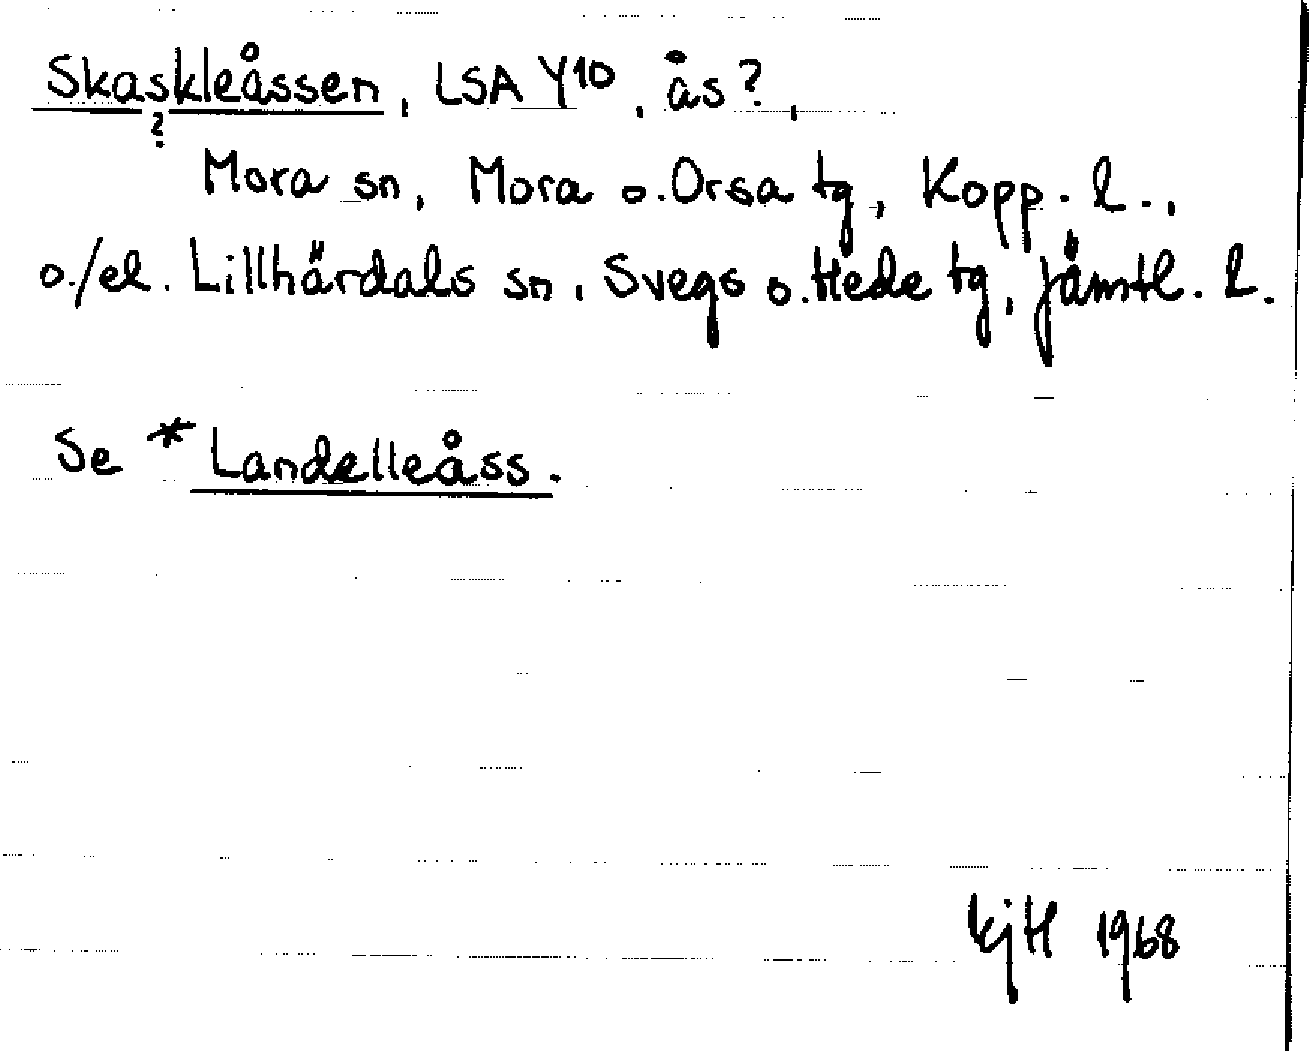 Skaskleåssen, LSA Y10, ås?,
?
Mora sn, Mora o. Orsa tg, Kopp. l.,
o./el. Lillhärdals sn, Svegs o. Hede tg, Jämtl. l.
Se * Landelleåss.
KjH 1968